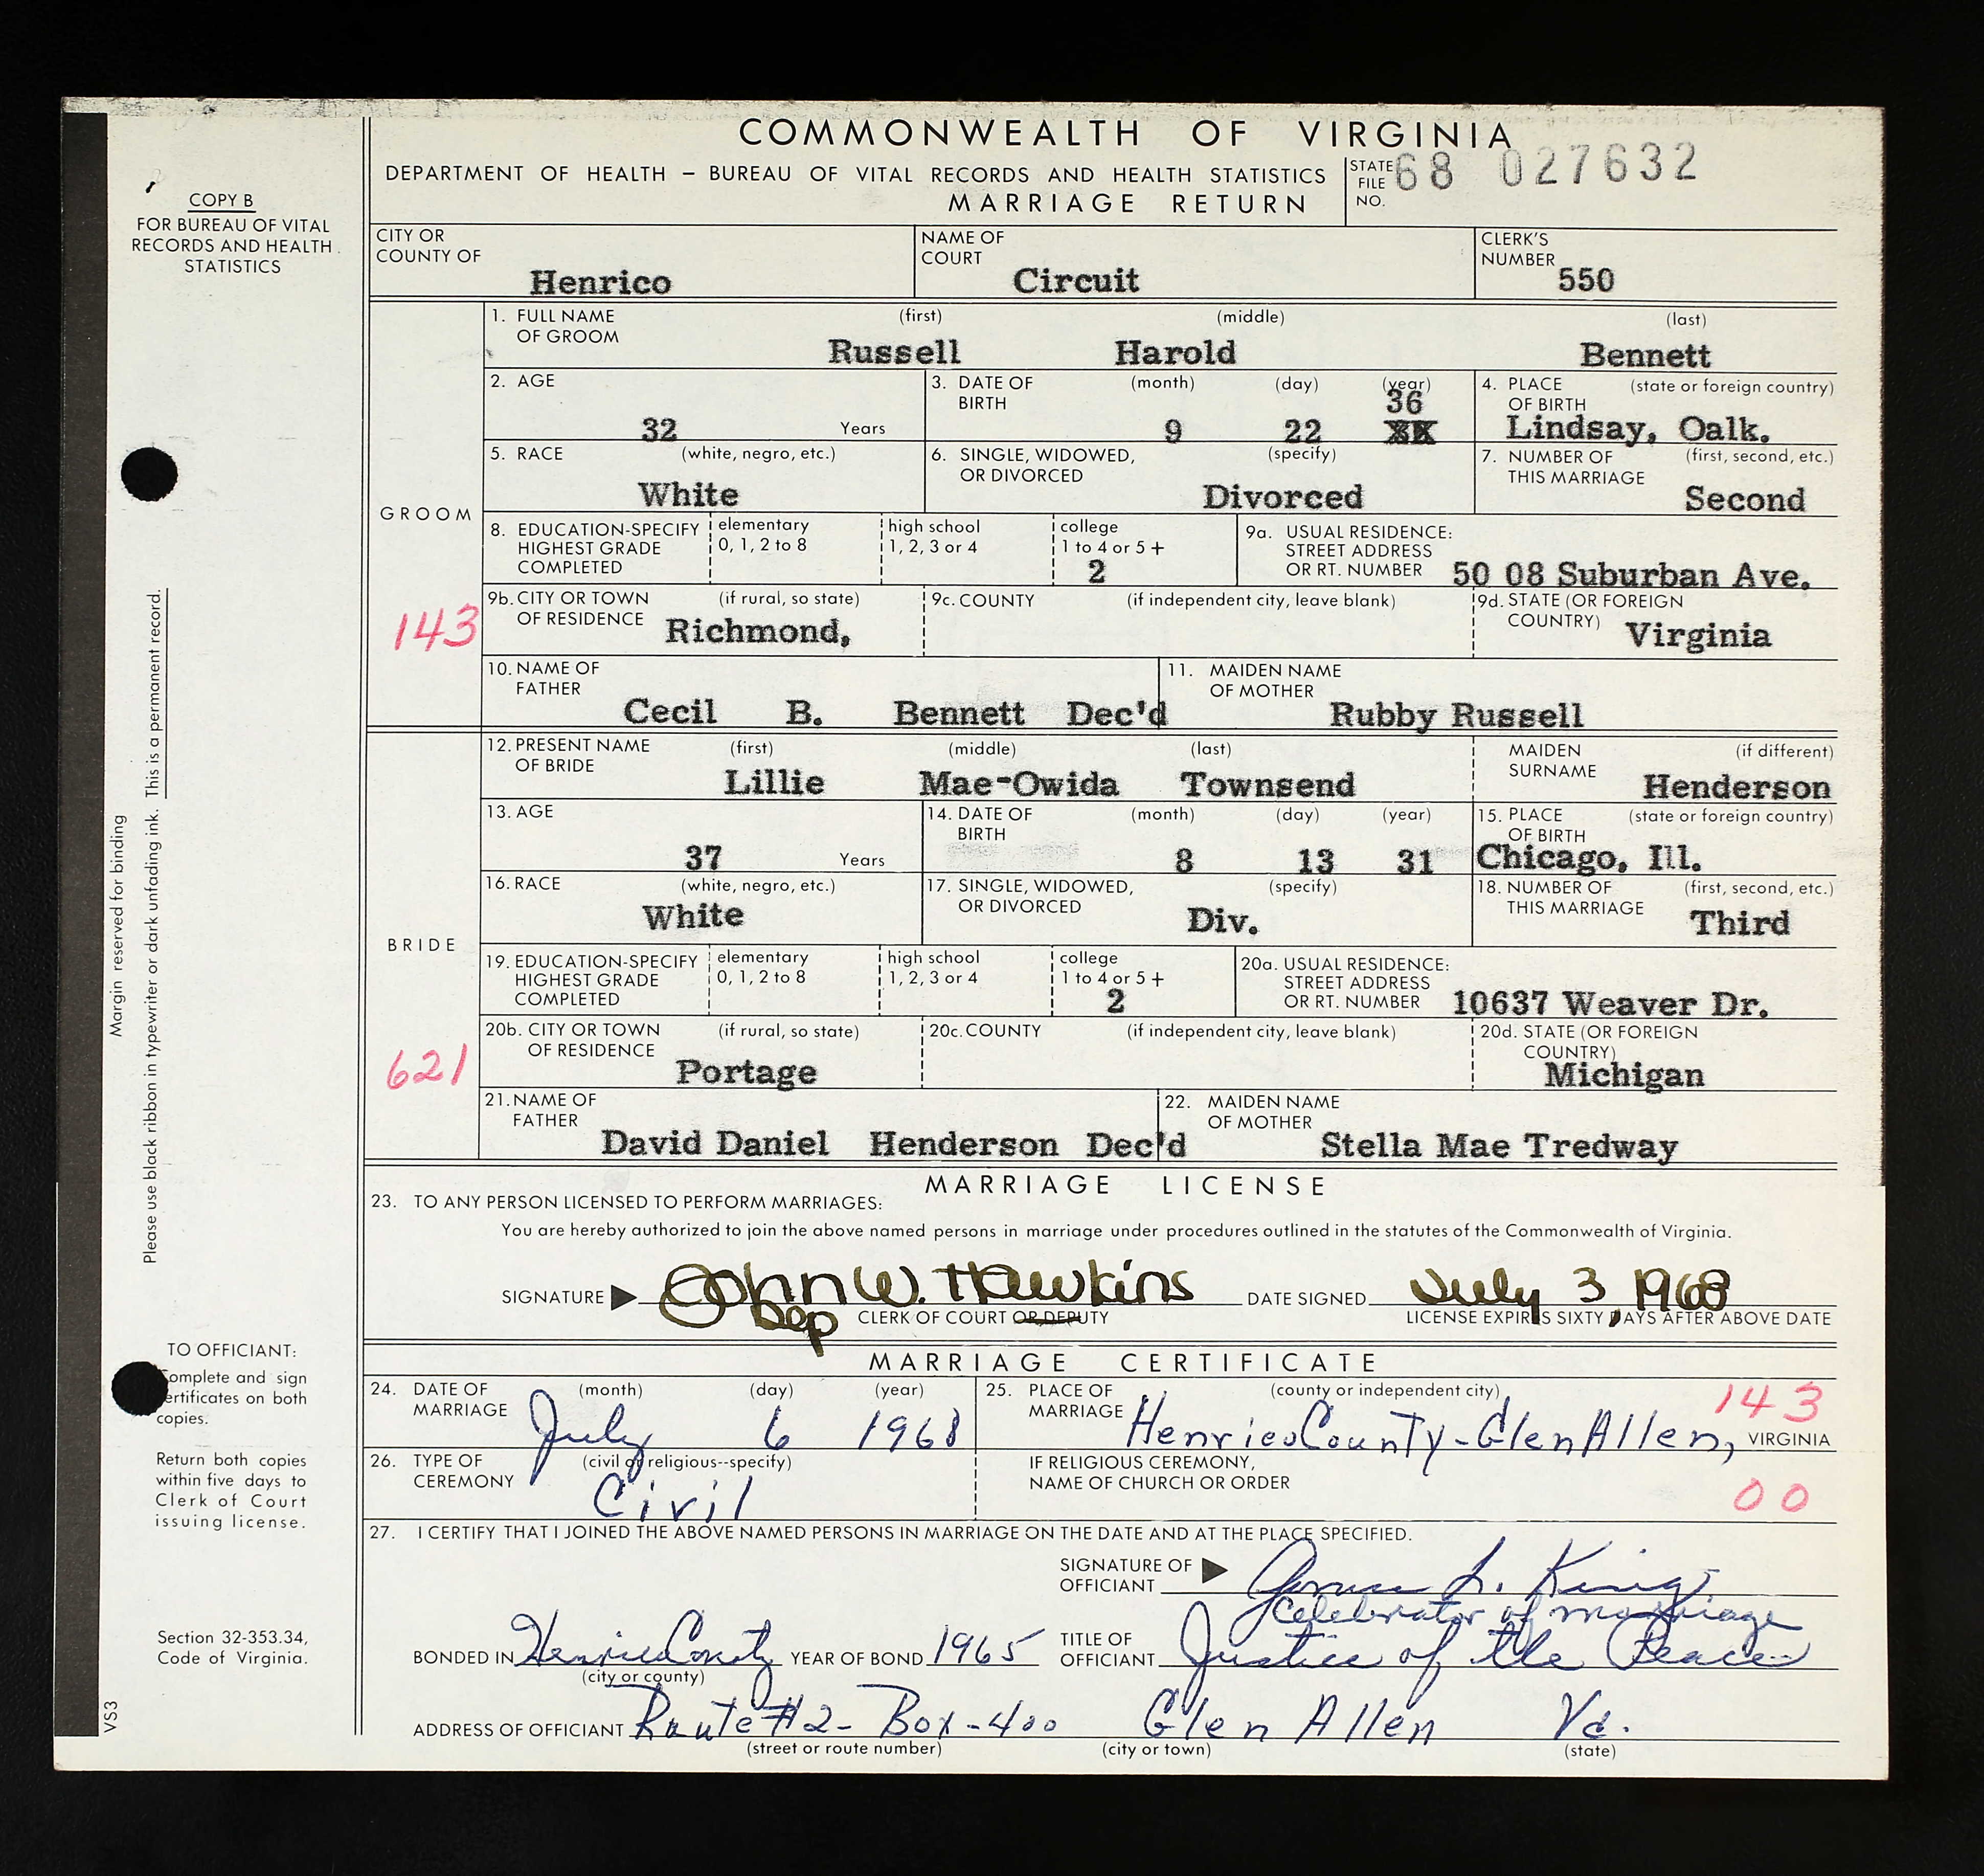 COMMONWEALTH OF VIRGINIA
DEPARTMENT OF HEALTH – BUREAU OF VITAL RECORDS AND HEALTH STATISTICS
MARRIAGE RETURN
STATE FILE NO. 68 027632
COPY B
FOR BUREAU OF VITAL
RECORDS AND HEALTH
STATISTICS
CITY OR COUNTY OF Henrico
NAME OF COURT Circuit
CLERK'S NUMBER 550
GROOM
143
1. FULL NAME OF GROOM (first) (middle) (last)
Russell Harold Bennett
2. AGE 32 Years
3. DATE OF BIRTH (month) (day) (year)
36
9 22
4. PLACE OF BIRTH (state or foreign country)
Lindsay, Oalk.
5. RACE (white, negro, etc.)
White
6. SINGLE, WIDOWED, OR DIVORCED (specify)
Divorced
7. NUMBER OF THIS MARRIAGE (first, second, etc.)
Second
8. EDUCATION-SPECIFY HIGHEST GRADE COMPLETED
elementary 0, 1, 2 to 8
high school 1, 2, 3 or 4
college 1 to 4 or 5+
2
9a. USUAL RESIDENCE: STREET ADDRESS OR RT. NUMBER 50 08 Suburban Ave.
9b. CITY OR TOWN OF RESIDENCE (if rural, so state)
Richmond,
9c. COUNTY (if independent city, leave blank)
9d. STATE (OR FOREIGN COUNTRY) Virginia
10. NAME OF FATHER
Cecil B. Bennett Dec'd
11. MAIDEN NAME OF MOTHER
Rubby Russell
BRIDE
621
12. PRESENT NAME OF BRIDE (first) (middle) (last)
Lillie Mae-Owida Townsend
MAIDEN SURNAME (if different)
Henderson
13. AGE 37 Years
14. DATE OF BIRTH (month) (day) (year)
8 13 31
15. PLACE OF BIRTH (state or foreign country)
Chicago, Ill.
16. RACE (white, negro, etc.)
White
17. SINGLE, WIDOWED, OR DIVORCED (specify)
Div.
18. NUMBER OF THIS MARRIAGE (first, second, etc.)
Third
19. EDUCATION-SPECIFY HIGHEST GRADE COMPLETED
elementary 0, 1, 2 to 8
high school 1, 2, 3 or 4
college 1 to 4 or 5+
2
20a. USUAL RESIDENCE: STREET ADDRESS OR RT. NUMBER 10637 Weaver Dr.
20b. CITY OR TOWN OF RESIDENCE (if rural, so state)
Portage
20c. COUNTY (if independent city, leave blank)
20d. STATE (OR FOREIGN COUNTRY)
Michigan
21. NAME OF FATHER
David Daniel Henderson Dec'd
22. MAIDEN NAME OF MOTHER
Stella Mae Tredway
MARRIAGE LICENSE
23. TO ANY PERSON LICENSED TO PERFORM MARRIAGES:
You are hereby authorized to join the above named persons in marriage under procedures outlined in the statutes of the Commonwealth of Virginia.
SIGNATURE John W. Hawkins DATE SIGNED July 3, 1968
Dep CLERK OF COURT OR DEPUTY LICENSE EXPIRES SIXTY DAYS AFTER ABOVE DATE
MARRIAGE CERTIFICATE
24. DATE OF MARRIAGE (month) (day) (year)
July 6 1968
25. PLACE OF MARRIAGE (county or independent city) 143
Henrico County - Glen Allen, VIRGINIA
26. TYPE OF CEREMONY (civil or religious--specify)
Civil
IF RELIGIOUS CEREMONY, NAME OF CHURCH OR ORDER
00
27. I CERTIFY THAT I JOINED THE ABOVE NAMED PERSONS IN MARRIAGE ON THE DATE AND AT THE PLACE SPECIFIED.
SIGNATURE OF OFFICIANT L. King
Celebrator of marriage
BONDED IN Henrico County YEAR OF BOND 1965
(city or county)
TITLE OF OFFICIANT Justice of the Peace
ADDRESS OF OFFICIANT Route #2- Box-400 Glen Allen Va.
(street or route number) (city or town) (state)
Margin reserved for binding
Please use black ribbon in typewriter or dark unfading ink. This is a permanent record.
TO OFFICIANT:
omplete and sign
ertificates on both
copies.
Return both copies
within five days to
Clerk of Court
issuing license.
Section 32-353.34,
Code of Virginia.
VS3